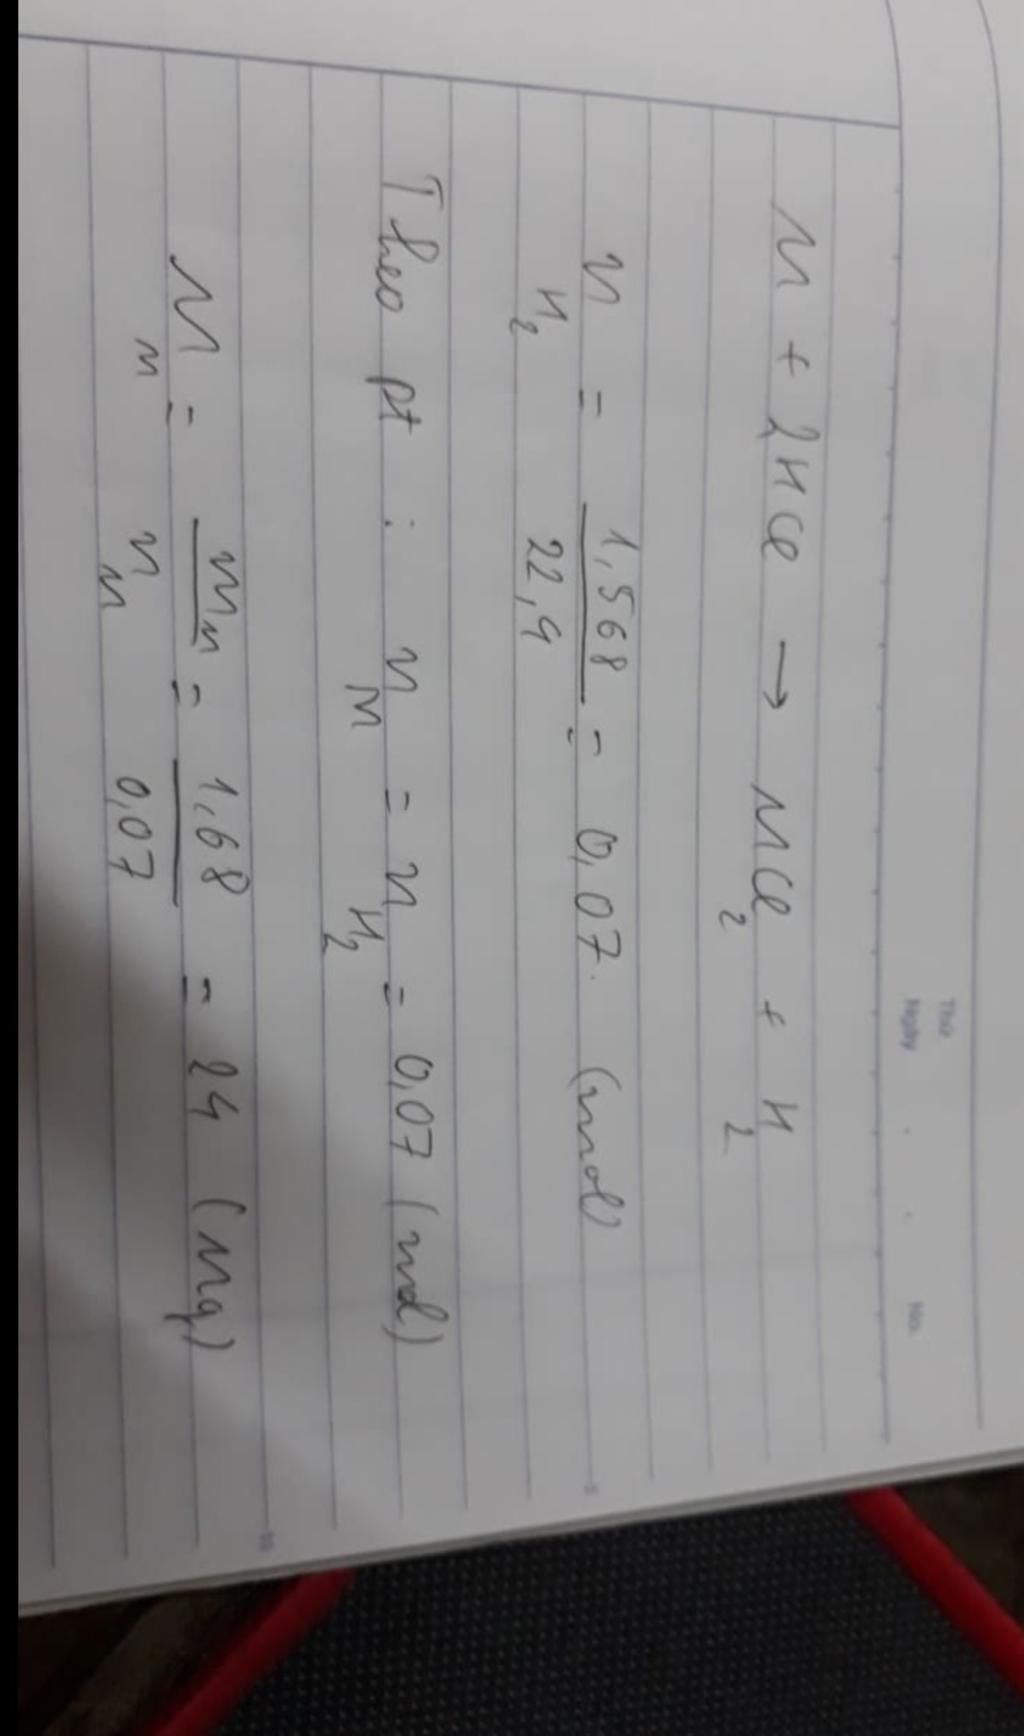 Thứ
Ngày . . No.
M + 2HCl → MCl₂ + H₂
n H₂ = 1,568 / 22,4 = 0,07 (mol)
Theo pt : n M = n H₂ = 0,07 (mol)
M M = m M / n M = 1,68 / 0,07 = 24 (Mg)
5
10